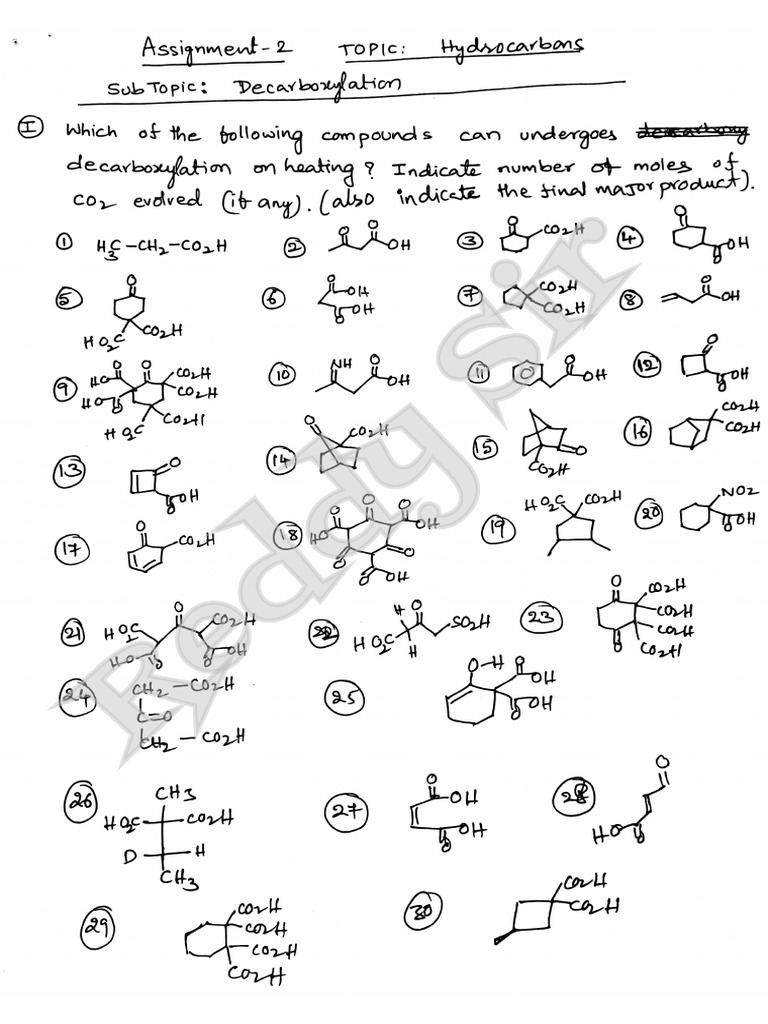 Assignment-2 TOPIC: Hydrocarbons
SubTopic: Decarboxylation
I Which of the following compounds can undergoes
decarboxylation on heating? Indicate number of moles of
CO2 evolved (if any). (also indicate the final major product).
1 H3C-CH2-CO2H 2 O O OH 3 O CO2H 4 O O OH
5 O HO2C CO2H 6 O OH O OH 7 CO2H CO2H 8 O OH
9 O HO O CO2H CO2H HO O HO2C CO2H 10 NH O OH 11 O OH 12 O O OH
13 O O OH 14 O CO2H 15 O CO2H 16 CO2H CO2H
17 O CO2H 18 O O O OH HO O O O O OH 19 HO2C CO2H 20 NO2 OH O
21 HO2C O CO2H HO O O OH 22 H O SO2H HO2C H 23 O CO2H CO2H CO2H CO2H O
24 CH2-CO2H C=O CH2-CO2H 25 O-H O OH OH O
26 CH3 HO2C CO2H D H CH3 27 O OH OH O 28 O HO O
29 CO2H CO2H CO2H CO2H 30 CO2H CO2H
Reddy sir